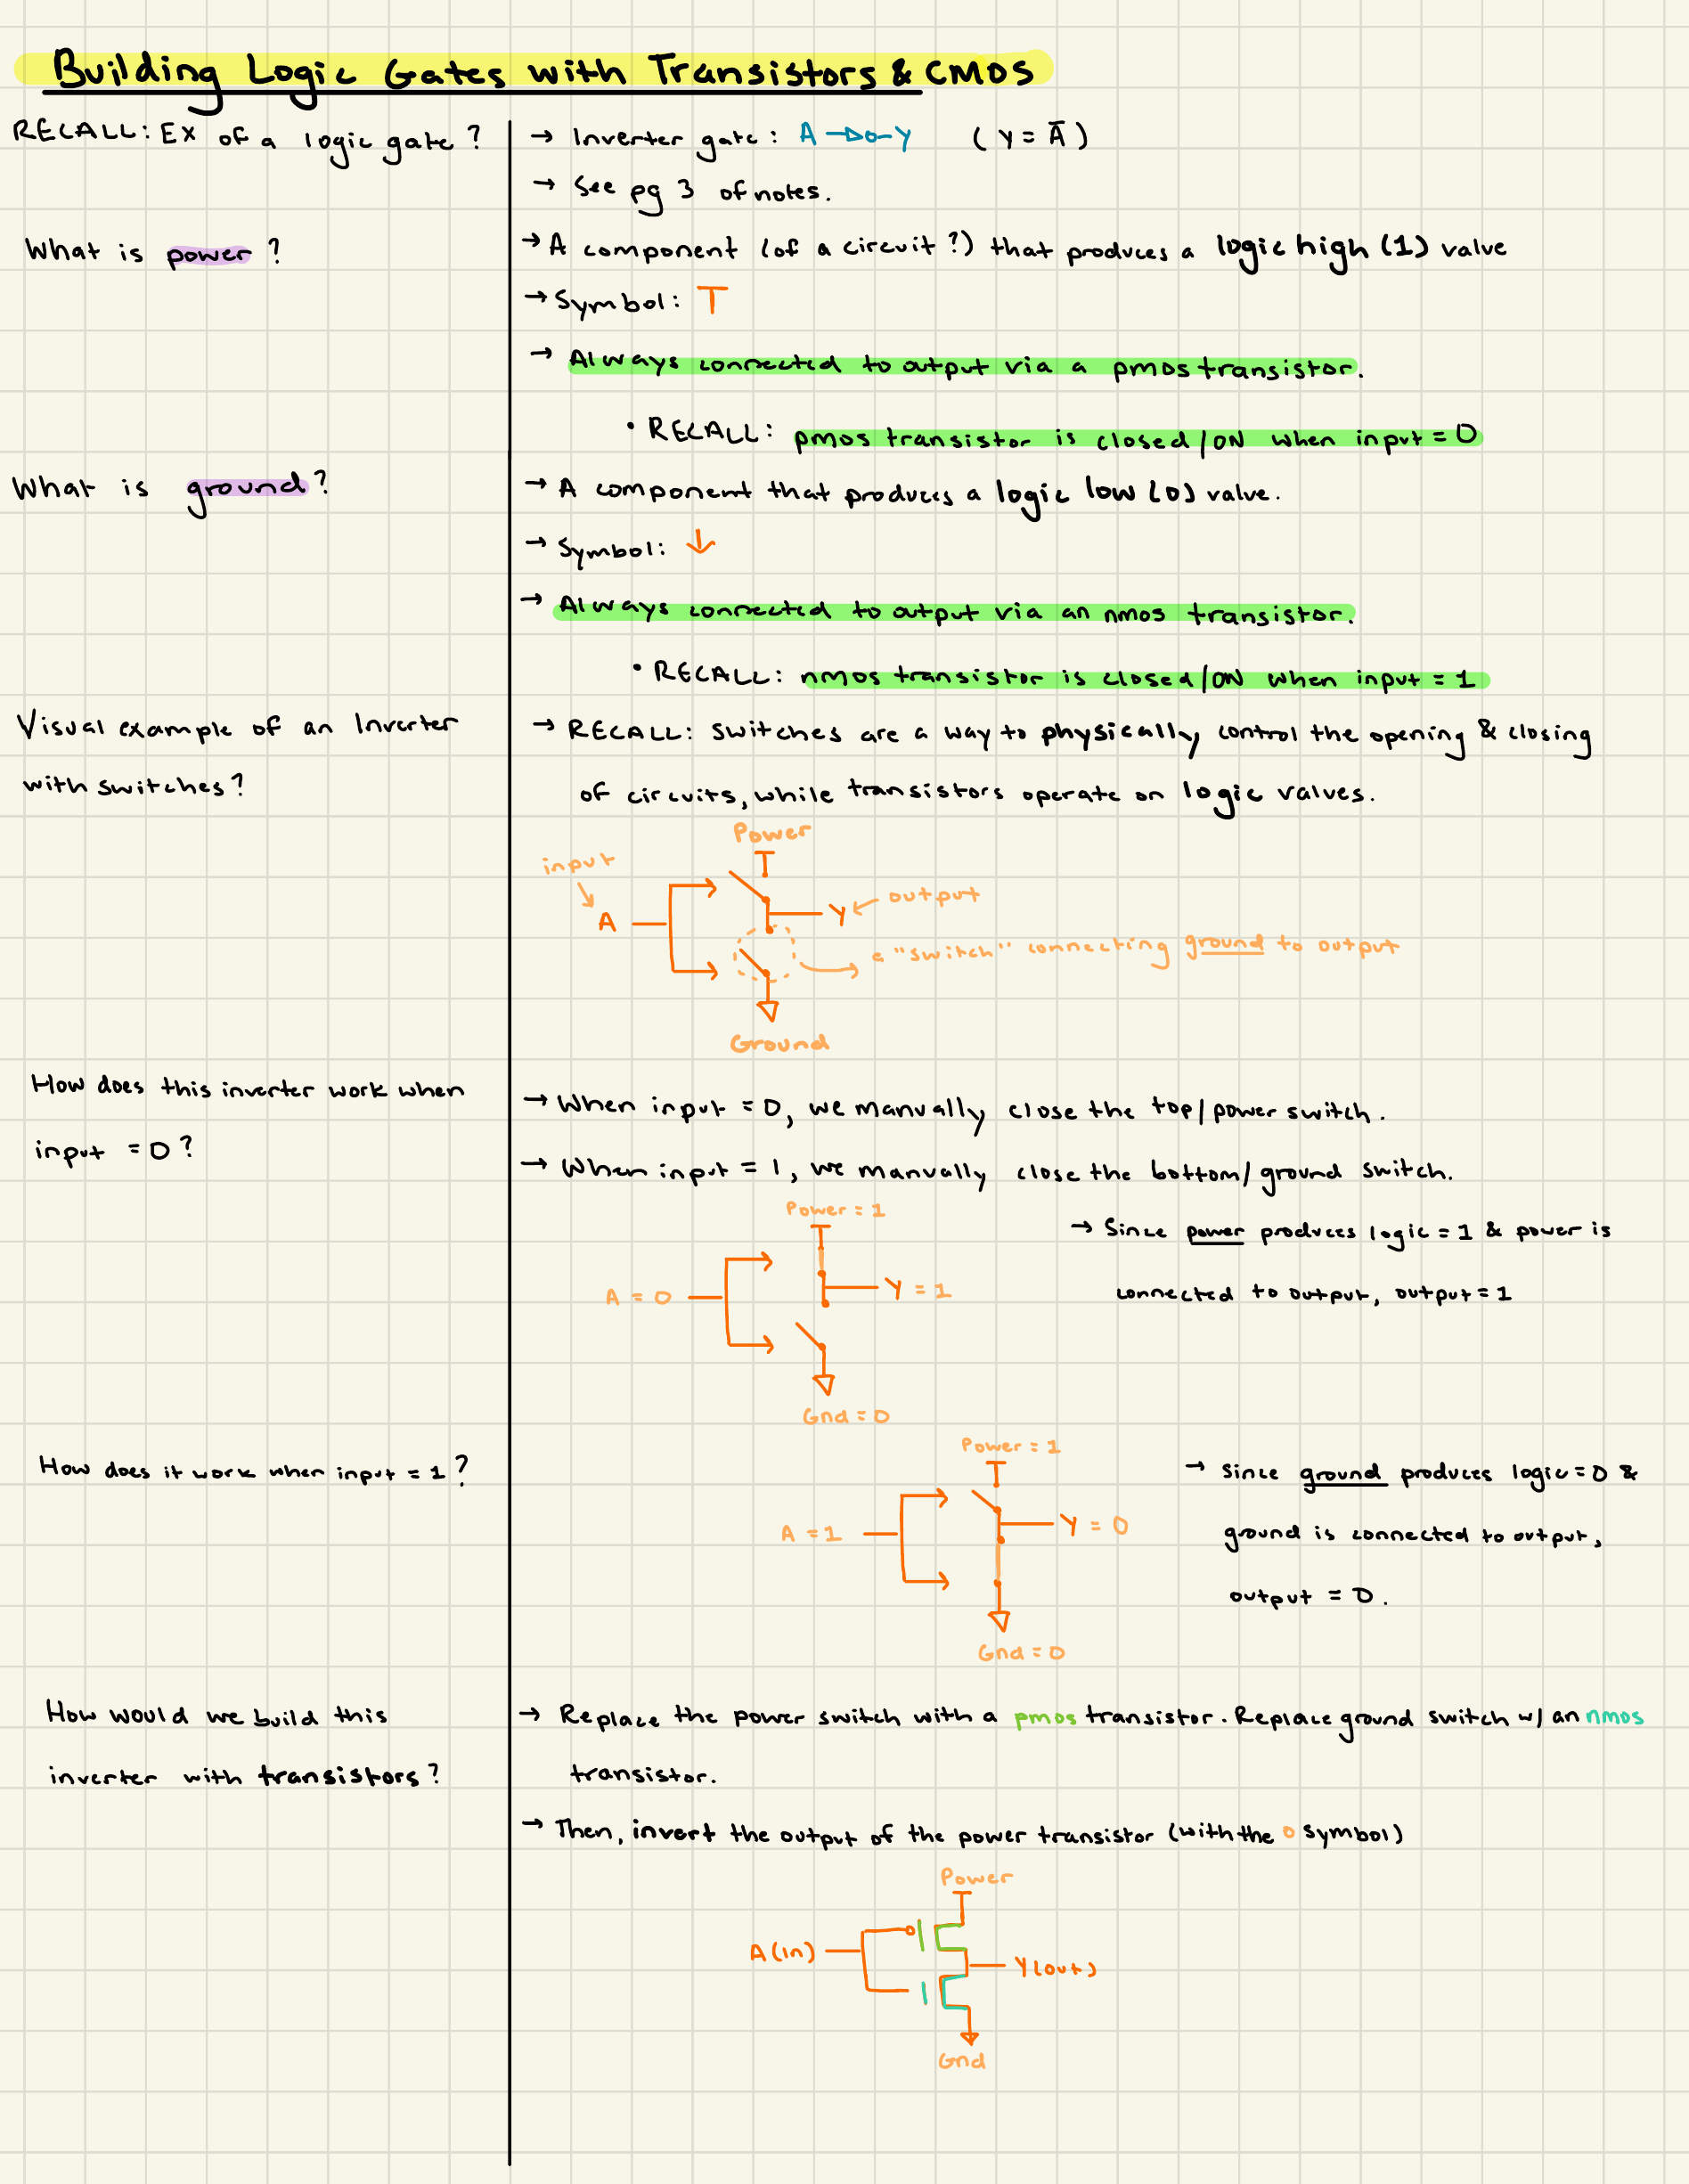 Building Logic Gates with Transistors & CMOS
RECALL: EX of a logic gate?
→ Inverter gate: A -▷o- Y (Y = Ā)
→ See pg 3 of notes.
What is power?
→ A component (of a circuit?) that produces a logic high (1) value
→ Symbol: T
→ Always connected to output via a pmos transistor.
• RECALL: pmos transistor is closed/ON when input = 0
What is ground?
→ A component that produces a logic low (0) value.
→ Symbol: ↓
→ Always connected to output via an nmos transistor.
• RECALL: nmos transistor is closed/ON when input = 1
Visual example of an Inverter
with switches?
→ RECALL: switches are a way to physically control the opening & closing
of circuits, while transistors operate on logic values.
Power
input
output
A
Y
a "switch" connecting ground to output
Ground
How does this inverter work when
input = 0?
→ When input = 0, we manually close the top/power switch.
→ When input = 1, we manually close the bottom/ground switch.
Power = 1
→ Since power produces logic = 1 & power is
connected to output, output = 1
A = 0
Y = 1
Gnd = 0
How does it work when input = 1?
Power = 1
→ since ground produces logic = 0 &
ground is connected to output,
output = 0.
A = 1
Y = 0
Gnd = 0
How would we build this
inverter with transistors?
→ Replace the power switch with a pmos transistor. Replace ground switch w/ an nmos
transistor.
→ Then, invert the output of the power transistor (with the o symbol)
Power
A (in)
Y (out)
Gnd